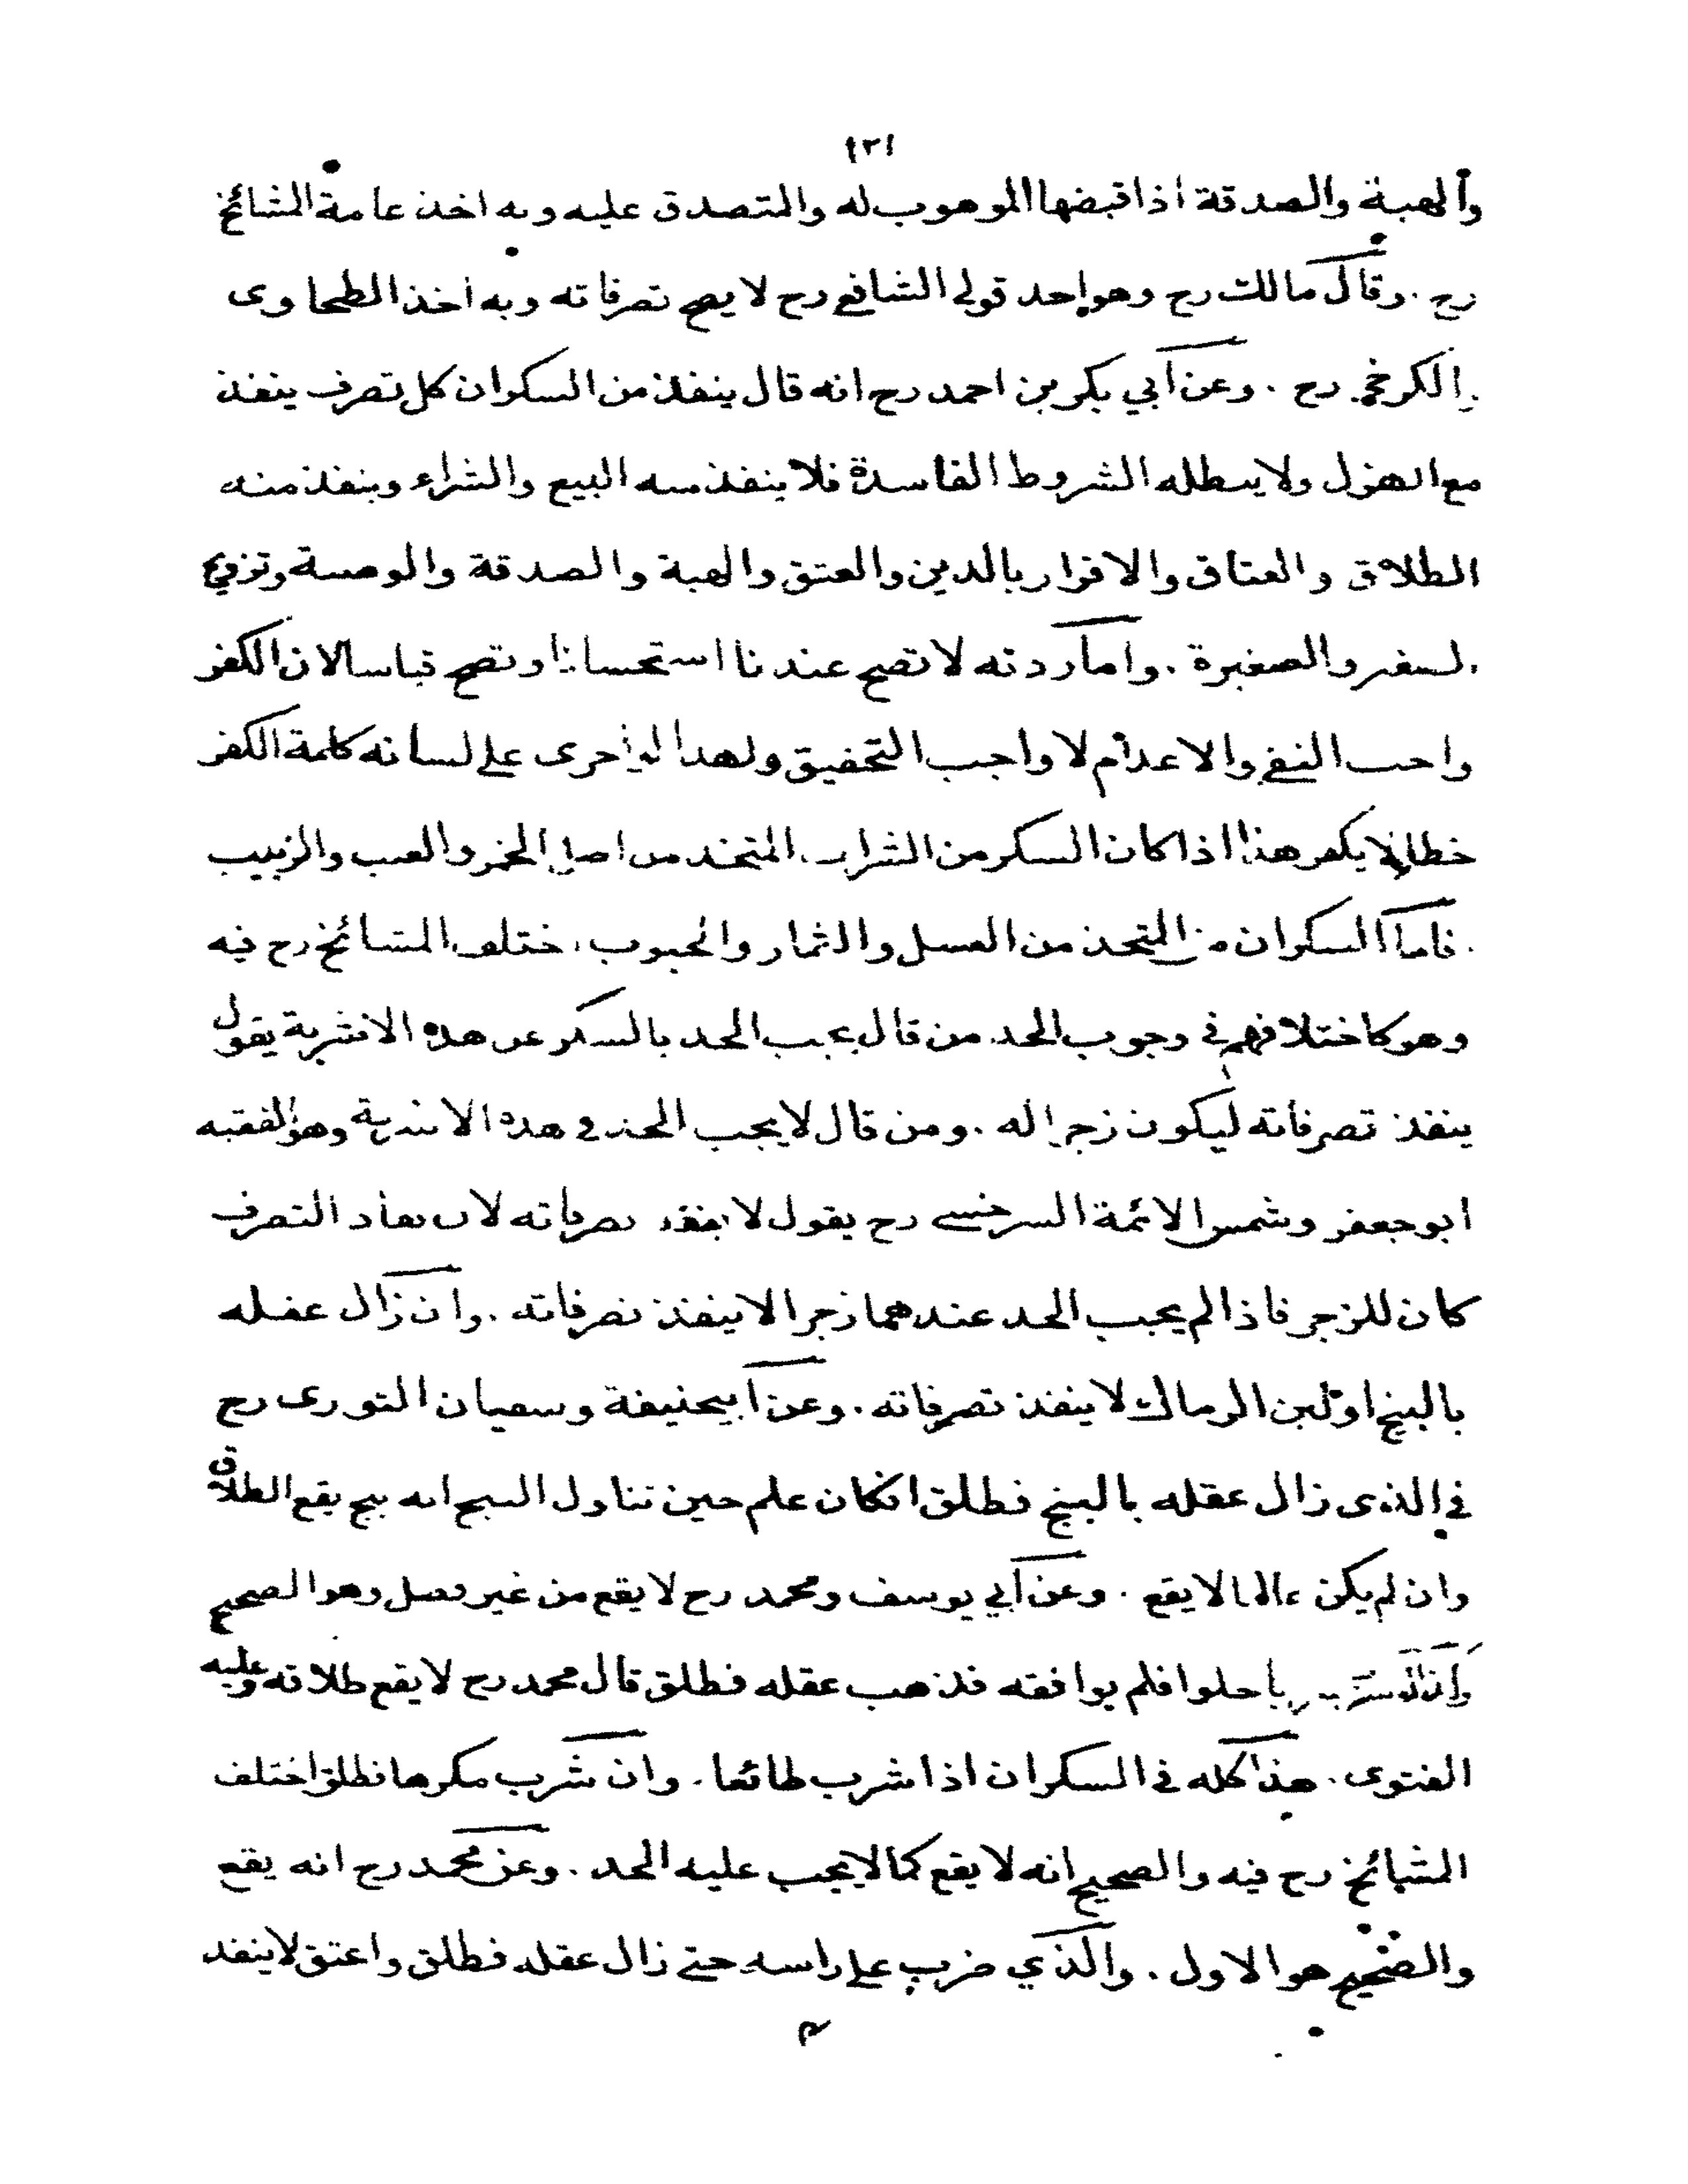 ١٣١
والهبة والصدقة اذا قبضها الموهوب له والمتصدق عليه وبه اخذ عامة المشائخ
رح . وقال مالك رح وهو احد قولي الشافعي رح لا يصح تصرفاته وبه اخذ الطحاوى
والكرخي رح . وعن ابي بكر بن احمد رح انه قال ينفذ من السكران كل تصرف ينفذ
مع الهزل ولا يبطله الشروط الفاسدة فلا ينفذ منه البيع والشراء وينفذ منه
الطلاق والعتاق والاقرار بالدين والعتق والهبة والصدقة والوصية وتزويج
الصغير والصغيرة . واما ردته لا تصح عندنا استحسانا وتصح قياسا لان الكفر
واجب النفي والاعدام لا واجب التحقيق ولهذا لو اجرى على لسانه كلمة الكفر
خطا لا يكفر هذا اذا كان السكر من الشراب المتخذ من اصل الخمر والعنب والزبيب
. فاما السكران من المتخذ من العسل والثمار والحبوب اختلف المشائخ رح فيه
وهو كاختلافهم في وجوب الحد من قال يجب الحد بالسكر عن هذه الاشربة يقول
ينفذ تصرفاته ليكون زجرا له . ومن قال لا يجب الحد في هذه الاشربة وهو الفقيه
ابو جعفر وشمس الائمة السرخسي رح يقول لا ينفذ تصرفاته لان نفاذ التصرف
كان للزجر فاذا لم يجب الحد عندهما زجرا لا ينفذ تصرفاته . وان زال عقله
بالبنج او لبن الرماك لا ينفذ تصرفاته . وعن ابيحنيفة وسفيان الثورى رح
في الذى زال عقله بالبنج فطلق انكان علم حين تناول البنج انه بنج يقع الطلاق
وان لم يكن عالما لا يقع . وعن ابي يوسف ومحمد رح لا يقع من غير فصل وهو الصحيح
شرب حلوا فلم يوافقه فذهب عقله فطلق قال محمد رح لا يقع طلاقه وعليه
الفتوى . هذا كله في السكران اذا شرب طائعا . وان شرب مكرها فطلق اختلف
المشائخ رح فيه والصحيح انه لا يقع كما لا يجب عليه الحد . وعن محمد رح انه يقع
والصحيح هو الاول . والذي ضرب على راسه حتى زال عقله فطلق واعتق لا ينفذ